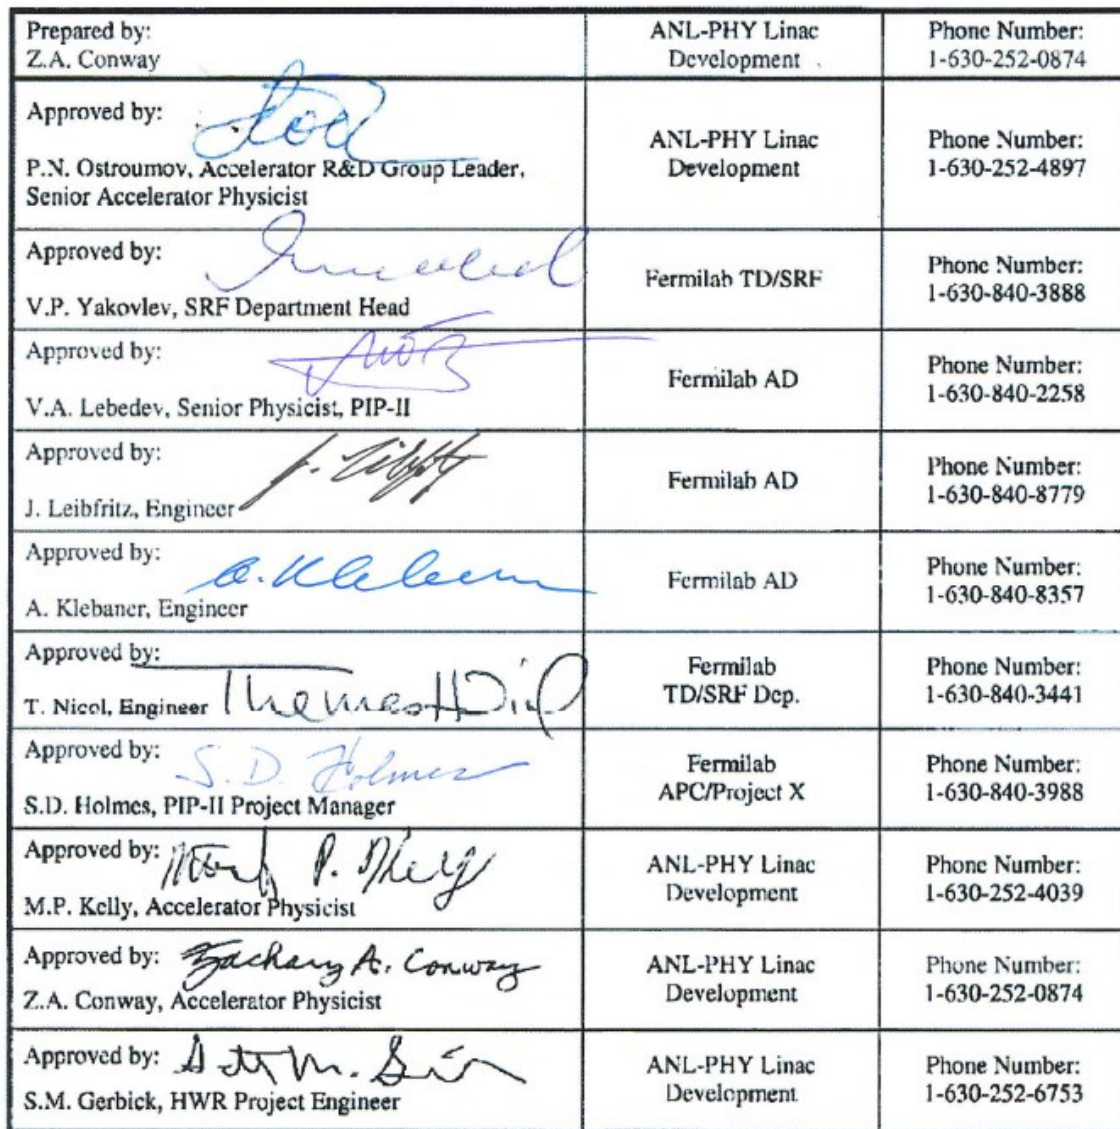 Prepared by:
Z.A. Conway
ANL-PHY Linac
Development
Phone Number:
1-630-252-0874
Approved by:
P.N. Ostroumov, Accelerator R&D Group Leader,
Senior Accelerator Physicist
ANL-PHY Linac
Development
Phone Number:
1-630-252-4897
Approved by:
V.P. Yakovlev, SRF Department Head
Fermilab TD/SRF
Phone Number:
1-630-840-3888
Approved by:
V.A. Lebedev, Senior Physicist, PIP-II
Fermilab AD
Phone Number:
1-630-840-2258
Approved by:
J. Leibfritz, Engineer
Fermilab AD
Phone Number:
1-630-840-8779
Approved by:
A. Klebaner, Engineer
Fermilab AD
Phone Number:
1-630-840-8357
Approved by:
T. Nicol, Engineer
Thomas H
Fermilab
TD/SRF Dep.
Phone Number:
1-630-840-3441
Approved by:
S. D. Holmes
S.D. Holmes, PIP-II Project Manager
Fermilab
APC/Project X
Phone Number:
1-630-840-3988
Approved by:
Mark P. Kelly
M.P. Kelly, Accelerator Physicist
ANL-PHY Linac
Development
Phone Number:
1-630-252-4039
Approved by:
Zachary A. Conway
Z.A. Conway, Accelerator Physicist
ANL-PHY Linac
Development
Phone Number:
1-630-252-0874
Approved by:
S.M. Gerbick, HWR Project Engineer
ANL-PHY Linac
Development
Phone Number:
1-630-252-6753